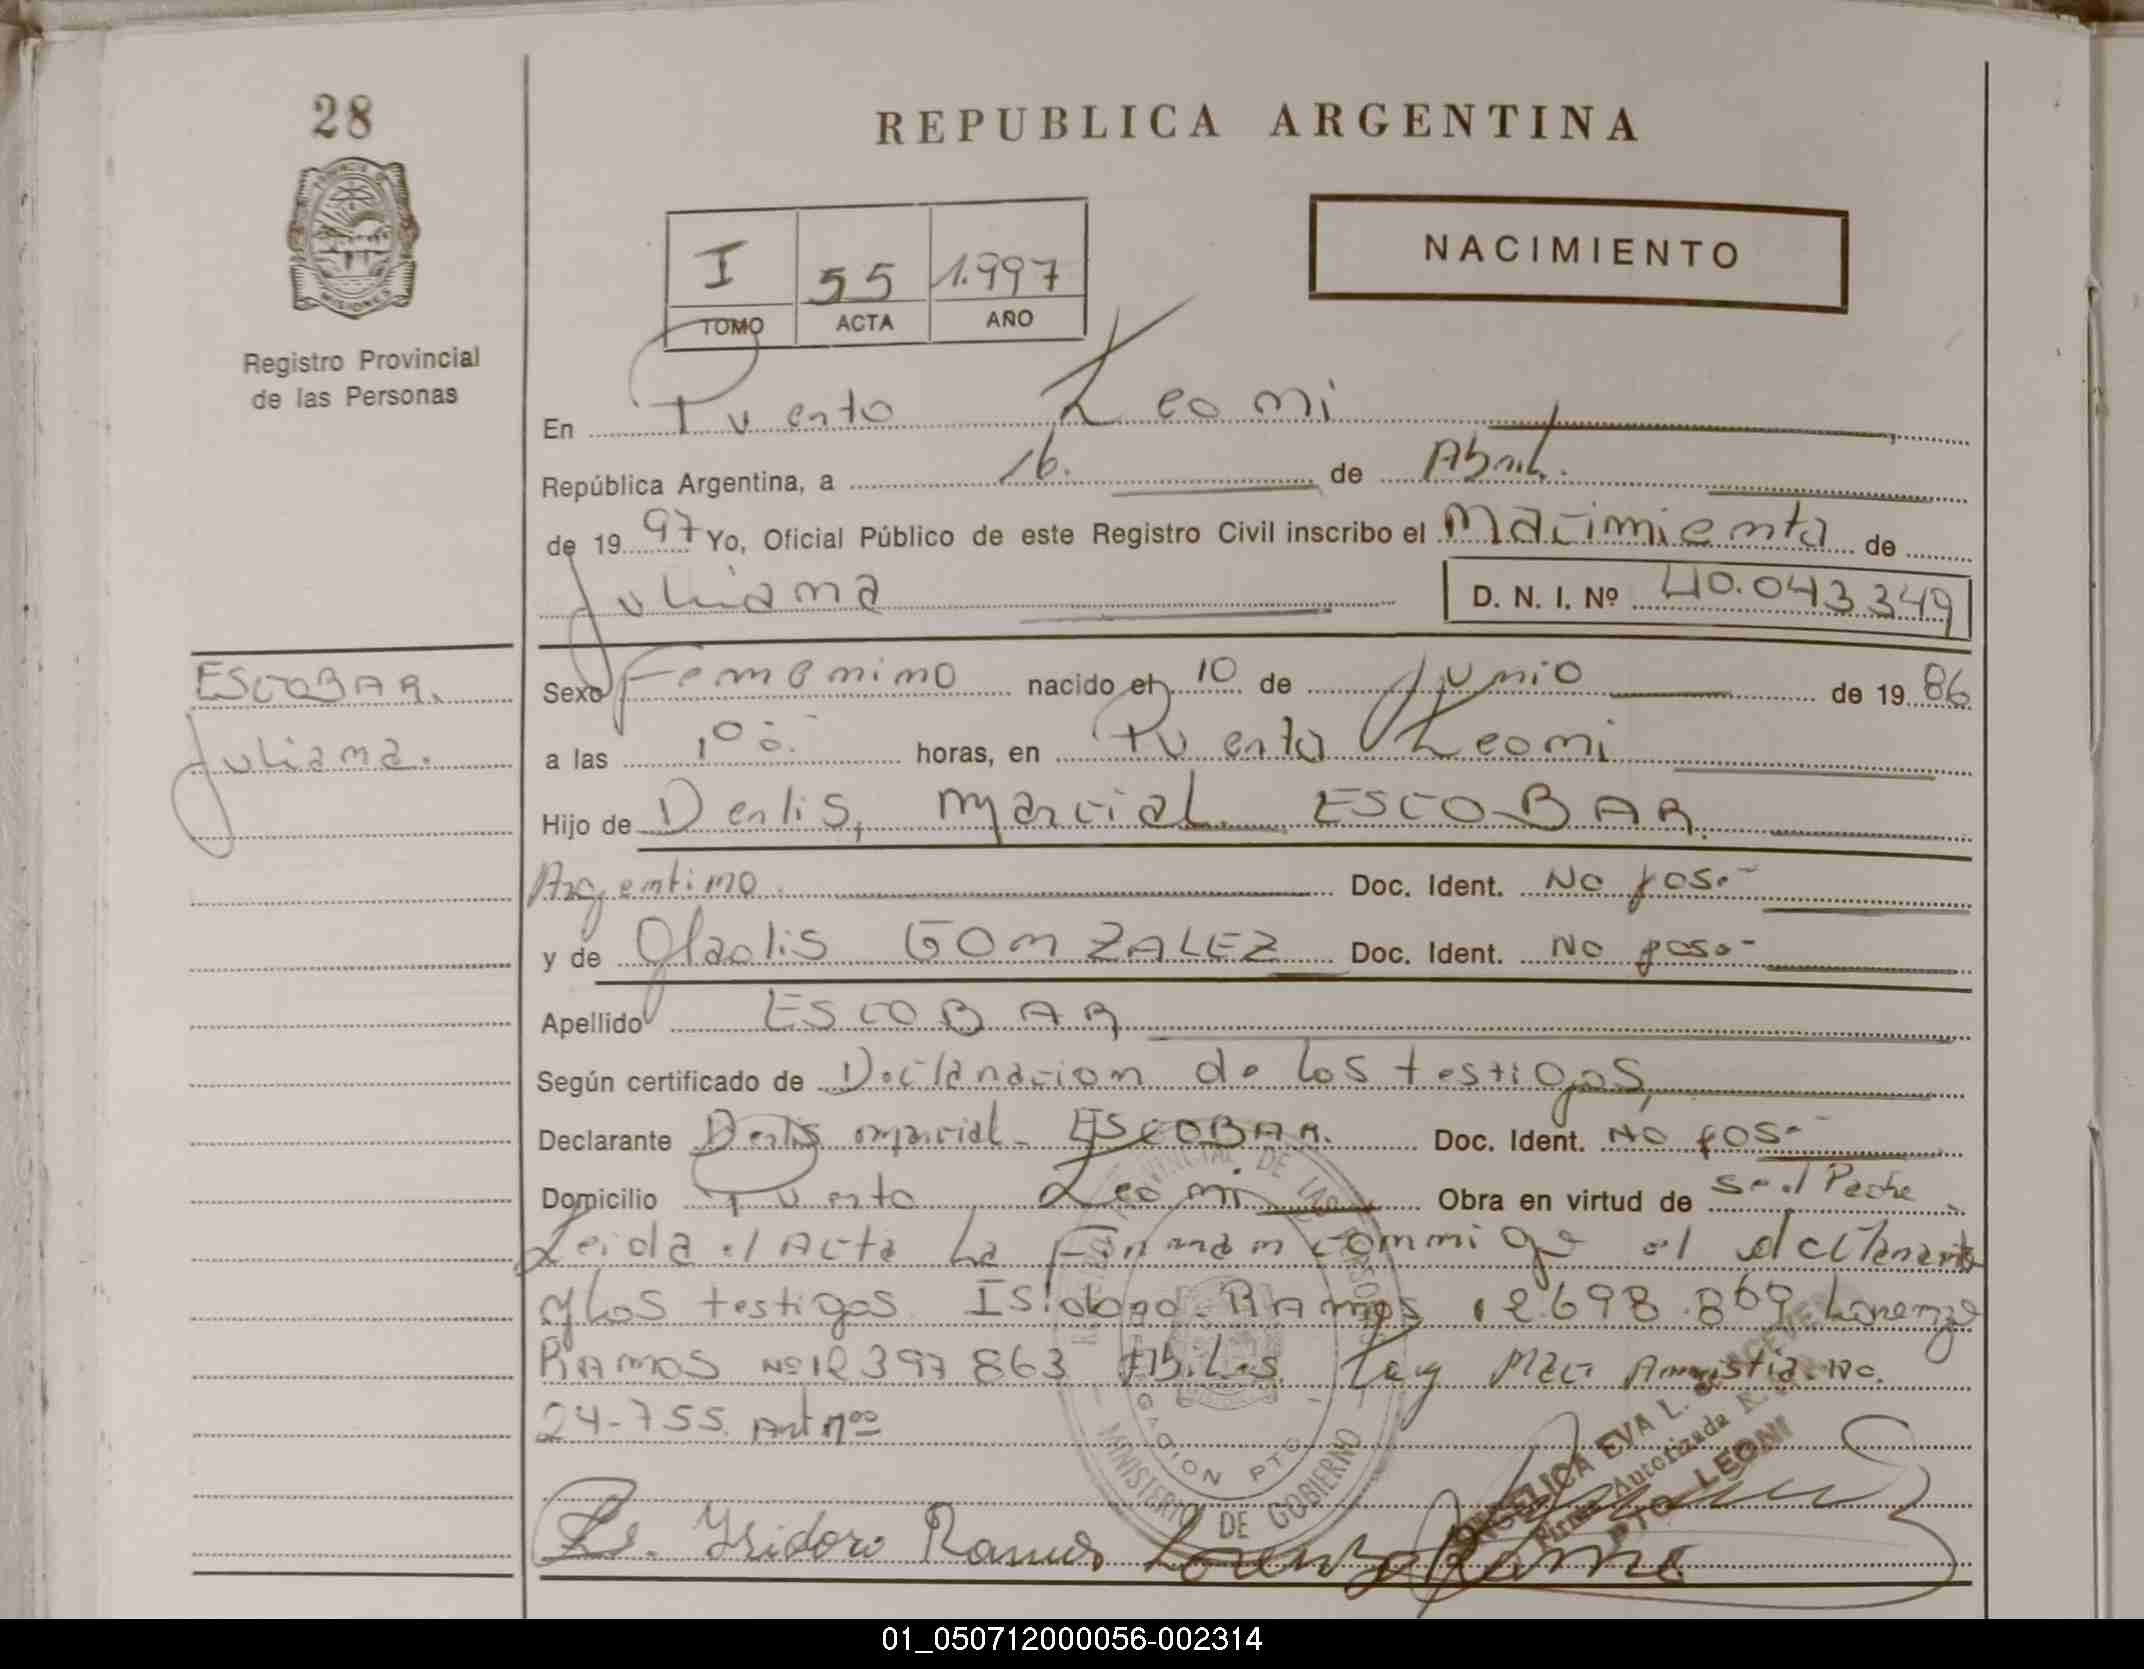 28
REPUBLICA ARGENTINA
NACIMIENTO
I 55 1.997
TOMO ACTA AÑO
MISIONES
Registro Provincial
de las Personas
En Puerto Leoni
República Argentina, a 16. de Abril.
de 1997 Yo, Oficial Público de este Registro Civil inscribo el Nacimiento de
Juliana D. N. I. Nº 40.043.349
ESCOBAR.
Juliana.
Sexo Femenino nacido el 10 de Junio de 1986
a las horas, en Puerto Leoni
Hijo de Derlis, Marcial ESCOBAR.
Argentino Doc. Ident. No pos.-
y de Gladis GONZALEZ Doc. Ident. No pose-
Apellido ESCOBAR
Según certificado de Declaracion de los testigos,
Declarante Derlis Marcial ESCOBAR. Doc. Ident. No pos-
Domicilio Puerto Leoni Obra en virtud de
Leida el Acta La Firman conmigo el declarante
y Los testigos Isidoro RAMOS 12.698.869 Lorenzo
RAMOS Nº 12 397 863 Ley Amnistia No.
24-755 Art
Isidoro Ramos Lorenzo Ramos
ANGELICA EVA L.
Firma Autorizada
PTO. LEONI
MINISTERIO DE GOBIERNO
01_050712000056-002314